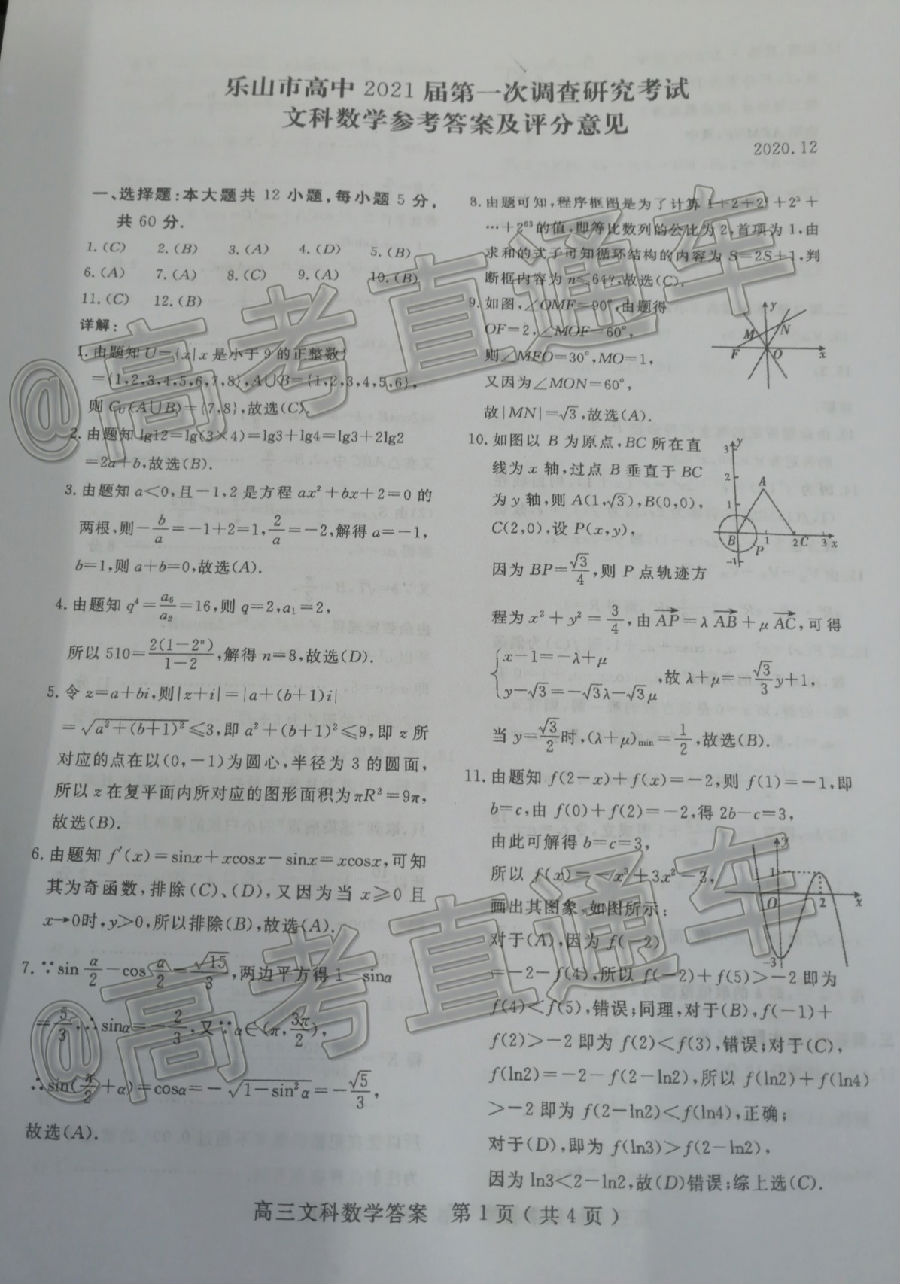 乐山市高中 2021 届第一次调查研究考试
文科数学参考答案及评分意见
2020.12
一、选择题:本大题共 12 小题,每小题 5 分,
共 60 分.
1.(C) 2.(B) 3.(A) 4.(D) 5.(B)
6.(A) 7.(A) 8.(C) 9.(A) 10.(B)
11.(C) 12.(B)
详解:
1.由题知 U={x|x 是小于 9 的正整数}
={1,2,3,4,5,6,7,8},A∪B={1,2,3,4,5,6},
则 C_U(A∪B)={7,8},故选(C).
2.由题知 lg12=lg(3×4)=lg3+lg4=lg3+2lg2
=2a+b,故选(B).
3.由题知 a<0,且-1,2 是方程 ax²+bx+2=0 的
两根,则-b/a=-1+2=1,2/a=-2,解得 a=-1,
b=1,则 a+b=0,故选(A).
4.由题知 q⁴=a₆/a₂=16,则 q=2,a₁=2,
所以 510=2(1-2ⁿ)/(1-2),解得 n=8,故选(D).
5.令 z=a+bi,则|z+i|=|a+(b+1)i|
=√(a²+(b+1)²)≤3,即 a²+(b+1)²≤9,即 z 所
对应的点在以(0,-1)为圆心,半径为 3 的圆面,
所以 z 在复平面内所对应的图形面积为πR²=9π,
故选(B).
6.由题知 f′(x)=sinx+xcosx-sinx=xcosx,可知
其为奇函数,排除(C)、(D),又因为当 x≥0 且
x→0时,y>0,所以排除(B),故选(A).
7.∵sin α/2-cos α/2=√15/3,两边平方得 1-sinα
=5/3,∴sinα=-2/3,又∵α∈(π,3π/2),
∴sin(π/2+α)=cosα=-√(1-sin²α)=-√5/3,
故选(A).
8.由题可知,程序框图是为了计算 1+2+2²+2³+
…+2⁶³的值,即等比数列的公比为 2,首项为 1.由
求和的式子可知循环结构的内容为 S=2S+1,判
断框内容为 n≤64?,故选(C).
9.如图,∠OMF=90°,由题得
OF=2,∠MOF=60°,
则∠MFO=30°,MO=1,
又因为∠MON=60°,
故|MN|=√3,故选(A).
y
M
N
F
O
x
10.如图以 B 为原点,BC 所在直
线为 x 轴,过点 B 垂直于 BC
为 y 轴,则 A(1,√3),B(0,0),
C(2,0),设 P(x,y),
因为 BP=√3/4,则 P 点轨迹方
程为 x²+y²=3/4,由 AP=λAB+μAC,可得
{x-1=-λ+μ
y-√3=-√3λ-√3μ ,故λ+μ=-√3/3 y+1,
当 y=√3/2时,(λ+μ)min=1/2,故选(B).
3
y
2
A
1
B
1
2
C
3
x
P
-1
11.由题知 f(2-x)+f(x)=-2,则 f(1)=-1,即
b=c,由 f(0)+f(2)=-2,得 2b-c=3,
由此可解得 b=c=3,
所以 f(x)=-x³+3x²-3,
画出其图象,如图所示:
对于(A),因为 f(-2)
=-2-f(4),所以 f(-2)+f(5)>-2 即为
f(4)<f(5),错误;同理,对于(B),f(-1)+
f(2)>-2 即为 f(2)<f(3),错误;对于(C),
f(ln2)=-2-f(2-ln2),所以 f(ln2)+f(ln4)
>-2 即为 f(2-ln2)<f(ln4),正确;
对于(D),即为 f(ln3)>f(2-ln2),
因为 ln3<2-ln2,故(D)错误;综上选(C).
y
1
O
2
x
-3
高三文科数学答案 第 1 页(共 4 页)
@高考直通车
@高考直通车